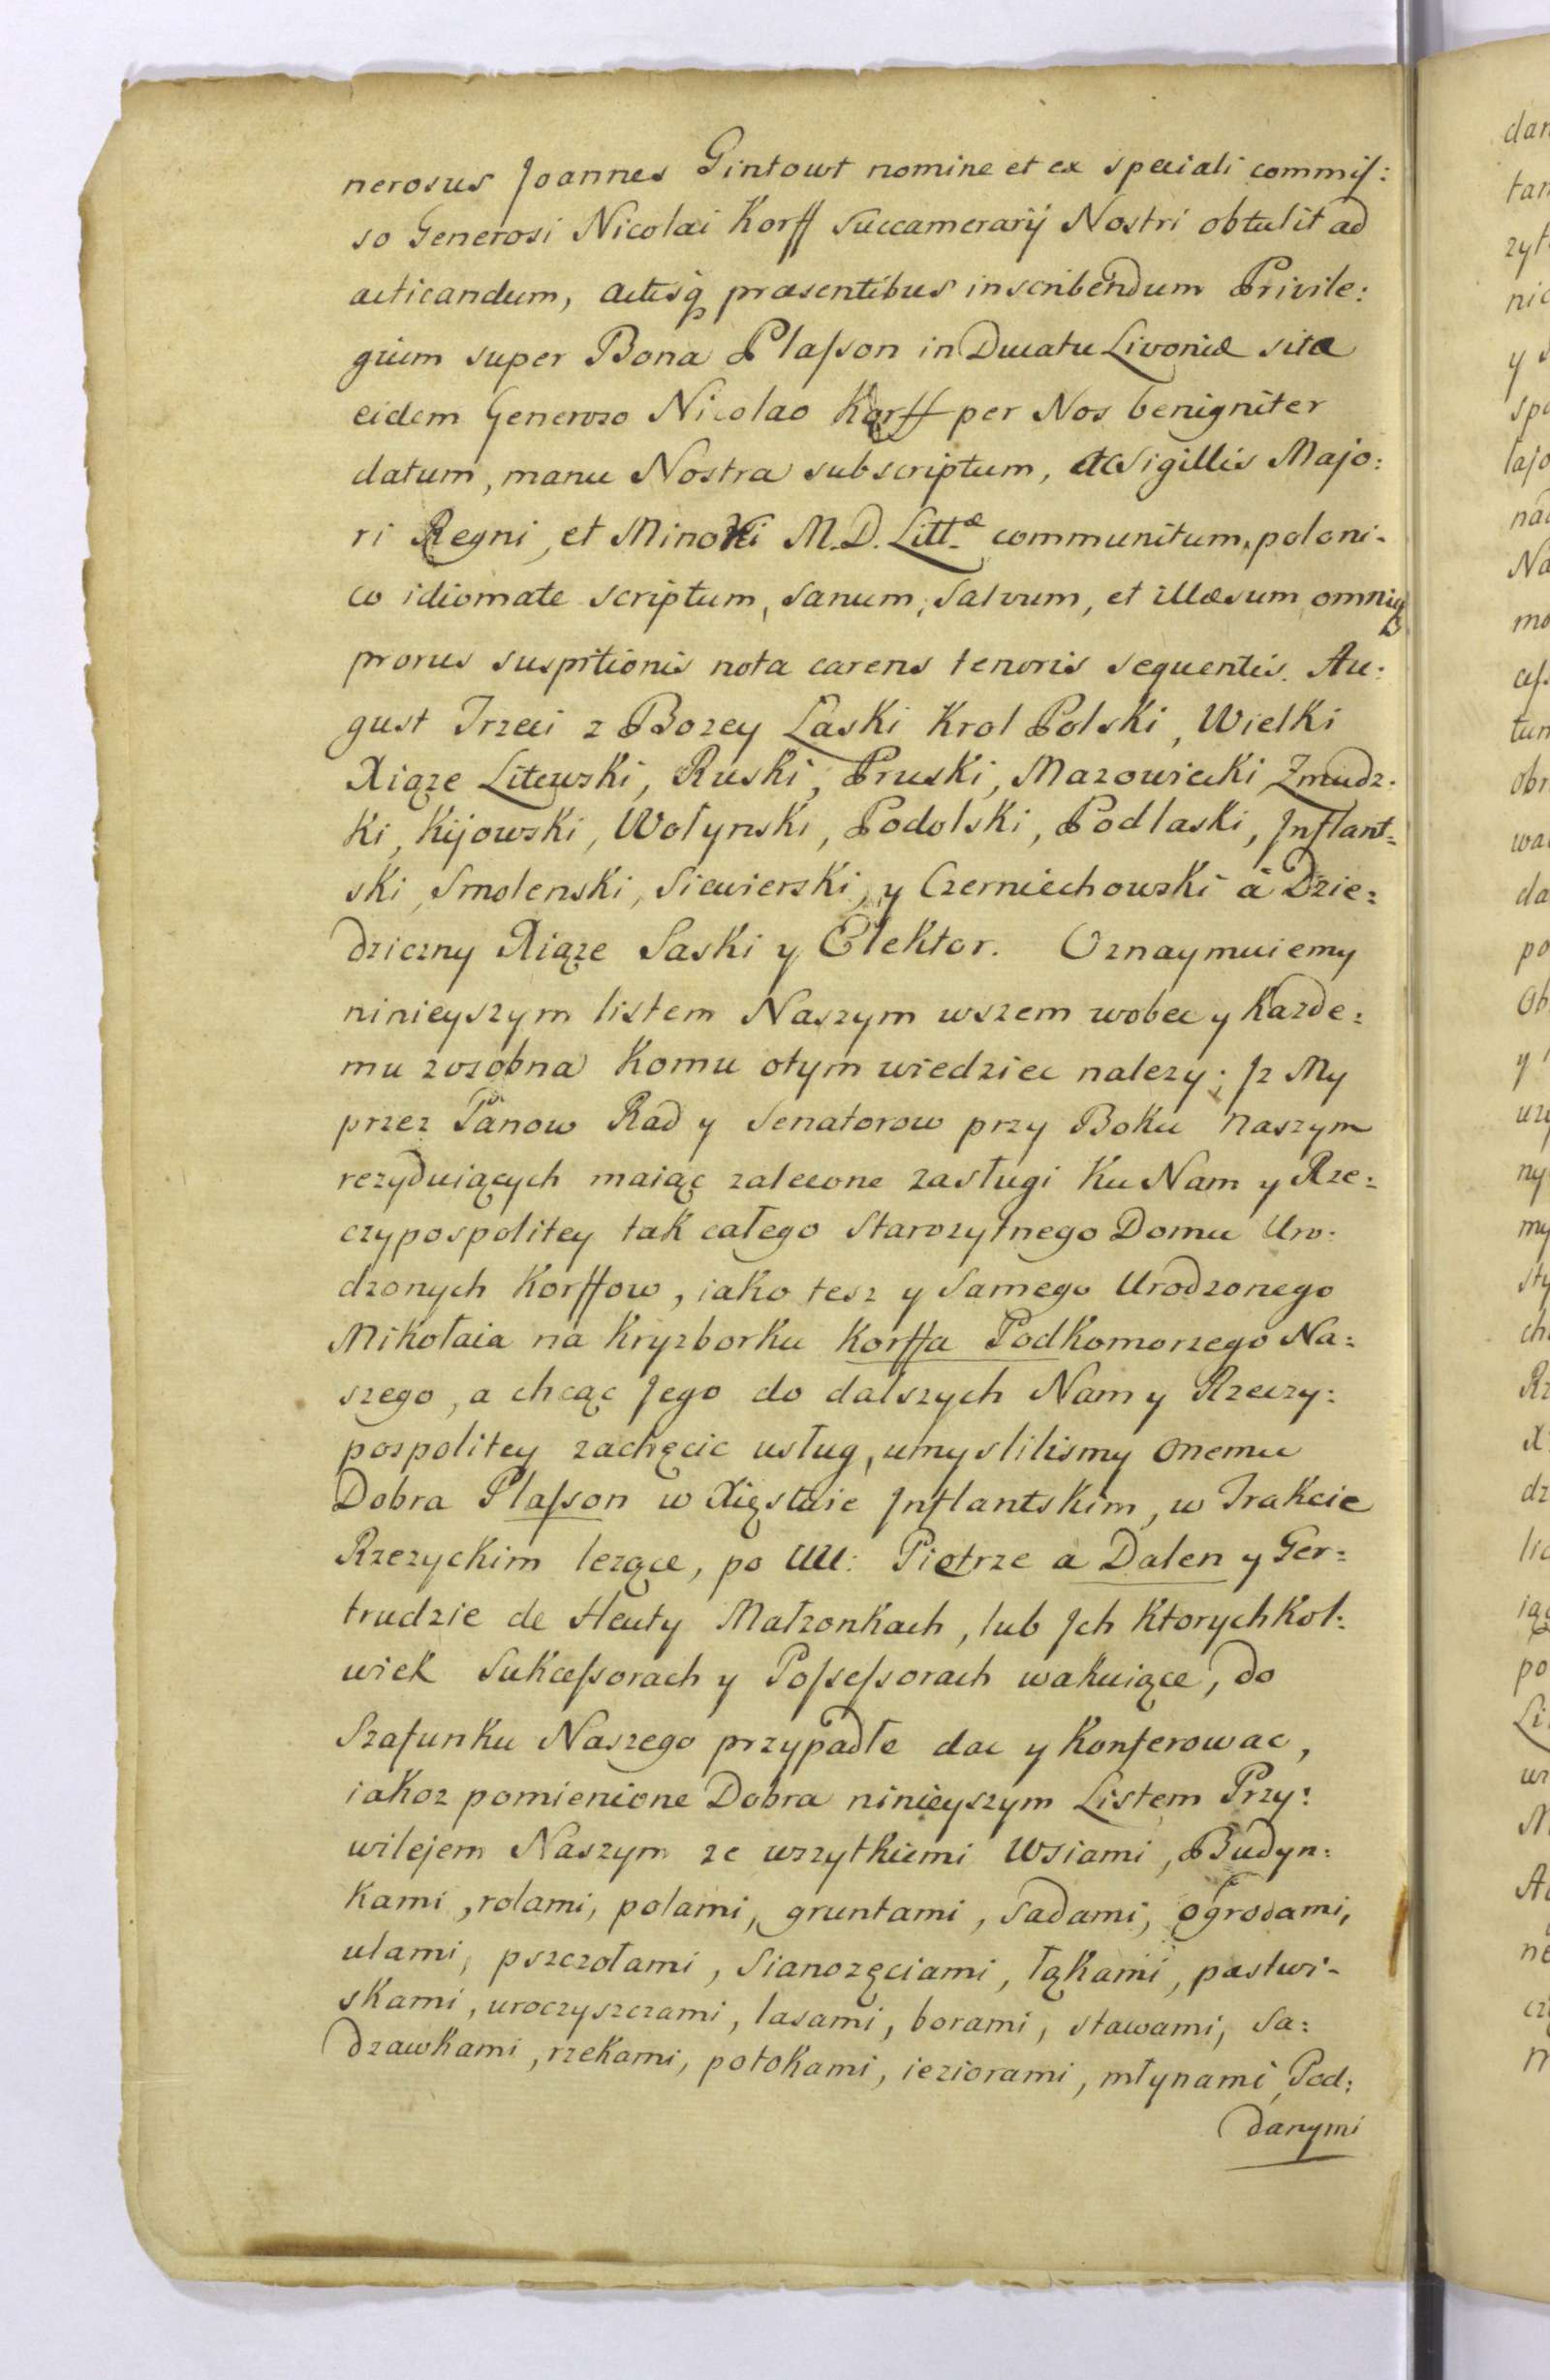 nerosus Joannes Gintowt nomine et ex speciali commis:
so Generosi Nicolai Korff Succamerarij Nostri obtulit ad
acticandum, actisq præsentibus inscribendum Privile:
gium super Bona Plasson in Ducatu Livoniæ sita
eidem Generoso Nicolao Korff per Nos benigniter
datum, manu Nostra subscriptum, ac Sigillis Majo:
ri Regni, et Minori M.D. Littæ communitum, poloni-
co idiomate scriptum, sanum, salvum, et illæsum, omniq
prorus suspitionis nota carens tenoris sequentis. Au:
gust Trzeci z Bozey Łaski Krol Polski, Wielki
Xiąze Litewski, Ruski, Pruski, Mazowiecki Zmudz:
ki, Kijowski, Wołynski, Podolski, Podlaski, Jnflant=
ski, Smolenski, Siewierski, y Czerniechowski á Dzie:
dziczny Xiąze Saski y Elektor. Oznaymuiemy
ninieyszym listem Naszym wszem wobec y Kazde:
mu zosobna Komu otym wiedziec nalezy; Jz My
przez Panow Rad y Senatorow przy Boku Naszym
rezyduiących maiąc zalecone zasługi Ku Nam y Rze:
czypospolitey tak całego Starozytnego Domu Uro:
dzonych Korffow, iako tesz y Samego Urodzonego
Mikołaia na Kryzborku Korffa Podkomorzego Na:
szego, a chcąc Jego do dalszych Nam y Rzeczy:
pospolitey zachęcic usług, umyslilismy onemu
Dobra Plasson w Xięstwie Jnflantskim, w Trakcie
Rzezyckim lezące, po UU: Piotrze a Dalen y Ger=
trudzie de Małzonkach, lub Jch Ktorychkol:
wiek Sukcessorach y Possessorach wakuiące, do
Szafunku Naszego przypadłe dac y Konferowac,
iakoz pomienione Dobra ninieyszym Listem Przy:
wilejem Naszym ze wszytkiemi Wsiami, Budyn:
kami, rolami, polami, gruntami, Sadami, ogrodami,
ulami, pszczołami, Sianozęciami, łąkami, pastwi-
skami, uroczyszczami, lasami, borami, stawami, Sa:
dzawkami, rzekami, potokami, ieziorami, młynami, Pod:
danymi